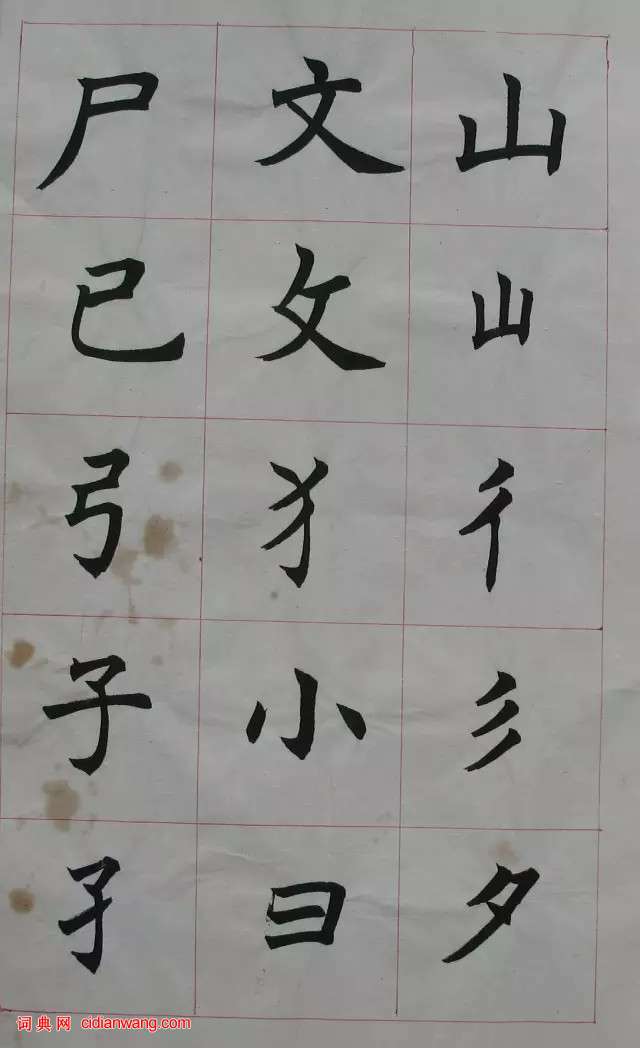 山山彳彡夕
文攵犭小曰
尸巳弓子孑
词典网 cidianwang.com